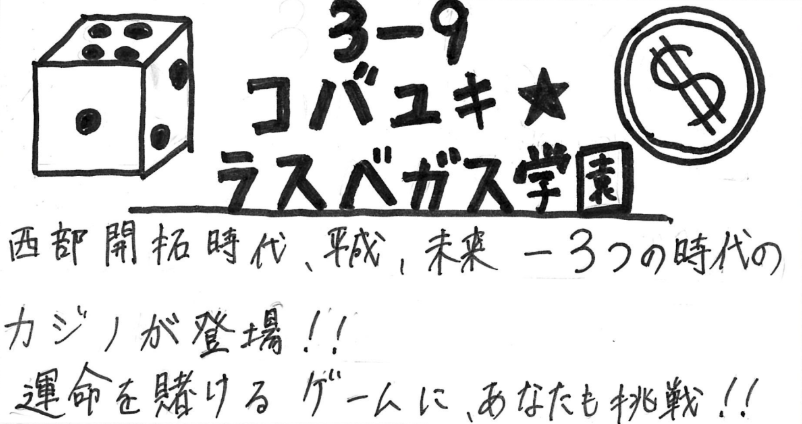 3-9
コバユキ★
ラスベガス学園
西部開拓時代、平成、未来ー3つの時代の
カジノが登場!!
運命を賭けるゲームに、あなたも挑戦!!